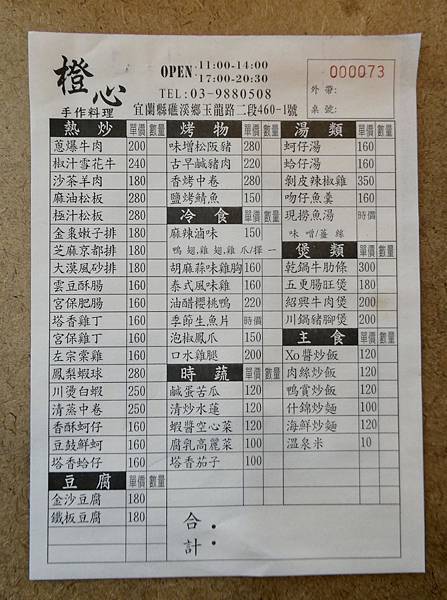 橙心
手作料理
OPEN: 11:00-14:00
17:00-20:30
TEL:03-9880508
宜蘭縣礁溪鄉玉龍路二段460-1號
000073
外帶:
桌號:
熱炒 單價 數量
蔥爆牛肉 200
椒汁雪花牛 240
沙茶羊肉 180
麻油松板 280
極汁松板 280
金棗嫩子排 180
芝麻京都排 180
大漠風砂排 180
雲豆酥腸 160
宮保肥腸 160
塔香雞丁 160
宮保雞丁 160
左宗棠雞 160
鳳梨蝦球 280
川燙白蝦 250
清蒸中卷 250
香酥蚵仔 160
豆鼓鮮蚵 160
塔香蛤仔 160
豆腐 單價 數量
金沙豆腐 180
鐵板豆腐 180
烤物 單價 數量
味增松阪豬 280
古早鹹豬肉 220
香烤中卷 280
鹽烤鯖魚 150
冷食 單價 數量
麻辣滷味 150
鴨翅.雞翅.雞爪/擇一
胡麻蒜味雞胸 160
泰式風味雞 160
油醋櫻桃鴨 220
季節生魚片 時價
泡椒鳳爪 150
口水雞腿 200
時蔬 單價 數量
鹹蛋苦瓜 120
清炒水蓮 120
蝦醬空心菜 120
腐乳高麗菜 100
塔香茄子 100
湯類 單價 數量
蚵仔湯 160
蛤仔湯 160
剝皮辣椒雞 350
吻仔魚羹 160
現撈魚湯 時價
味噌/薑絲
煲類 單價 數量
乾鍋牛肋條 300
五更腸旺煲 180
紹興牛肉煲 200
川鍋豬腳煲 200
主食 單價 數量
Xo醬炒飯 120
肉絲炒飯 120
鴨賞炒飯 120
什錦炒麵 100
海鮮炒麵 120
溫泉米 10
合計: